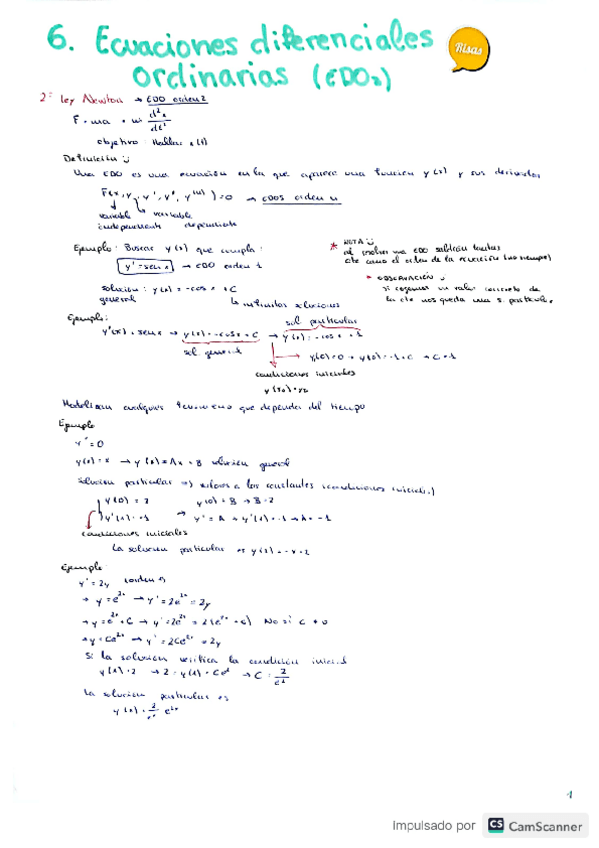 6. Ecuaciones diferenciales
ordinarias (EDOs)
Risas
2ª ley Newton → EDO orden 2
F = ma = m d²x/dt²
objetivo Hallar x(t)
Definición
Una EDO es una ecuación en la que aparece una función y(x) y sus derivadas
F(x, y, y', y'', y⁽ⁿ⁾) = 0 → EDOs orden n
variable variable
independiente dependiente
Ejemplo: Buscar y(x) que cumpla:
y' = sen x → EDO orden 1
solución: y(x) = -cos x + C
general ↳ infinitas soluciones
* NOTA
al resolver una EDO saldrán tantas
cte como el orden de la ecuación (no siempre)
* OBSERVACIÓN
si cogemos un valor concreto de
la cte nos queda una s. particular
Ejemplo:
sol particular
y'(x) = sen x → y(x) = -cos x + C → y(x) = -cos x + 1
sol. general
y(0) = 0 → y(0) = -1 + C → C = 1
condiciones iniciales
y(x₀) = y₀
Modelizan cualquier fenómeno que dependa del tiempo
Ejemplo
y'' = 0
y(x) = x → y(x) = Ax + B solución general
Solución particular => valores a las constantes (condiciones inicials)
y(0) = 2 y(0) = B → B = 2
y'(1) = -1 → y' = A → y'(1) = -1 → A = -1
condiciones iniciales
La solución particular es y(x) = -x + 2
Ejemplo:
y' = 2y (orden 1)
→ y = e²ˣ → y' = 2e²ˣ = 2y
→ y = e²ˣ + C → y' = 2e²ˣ = 2(e²ˣ + c) No si C ≠ 0
→ y = Ce²ˣ → y' = 2Ce²ˣ = 2y
Si la solución verifica la condición inicial
y(1) = 2 → 2 = y(1) = Ce² → C = 2/e²
La solución particular es
y(x) = 2/e² e²ˣ
1
Impulsado por CS CamScanner